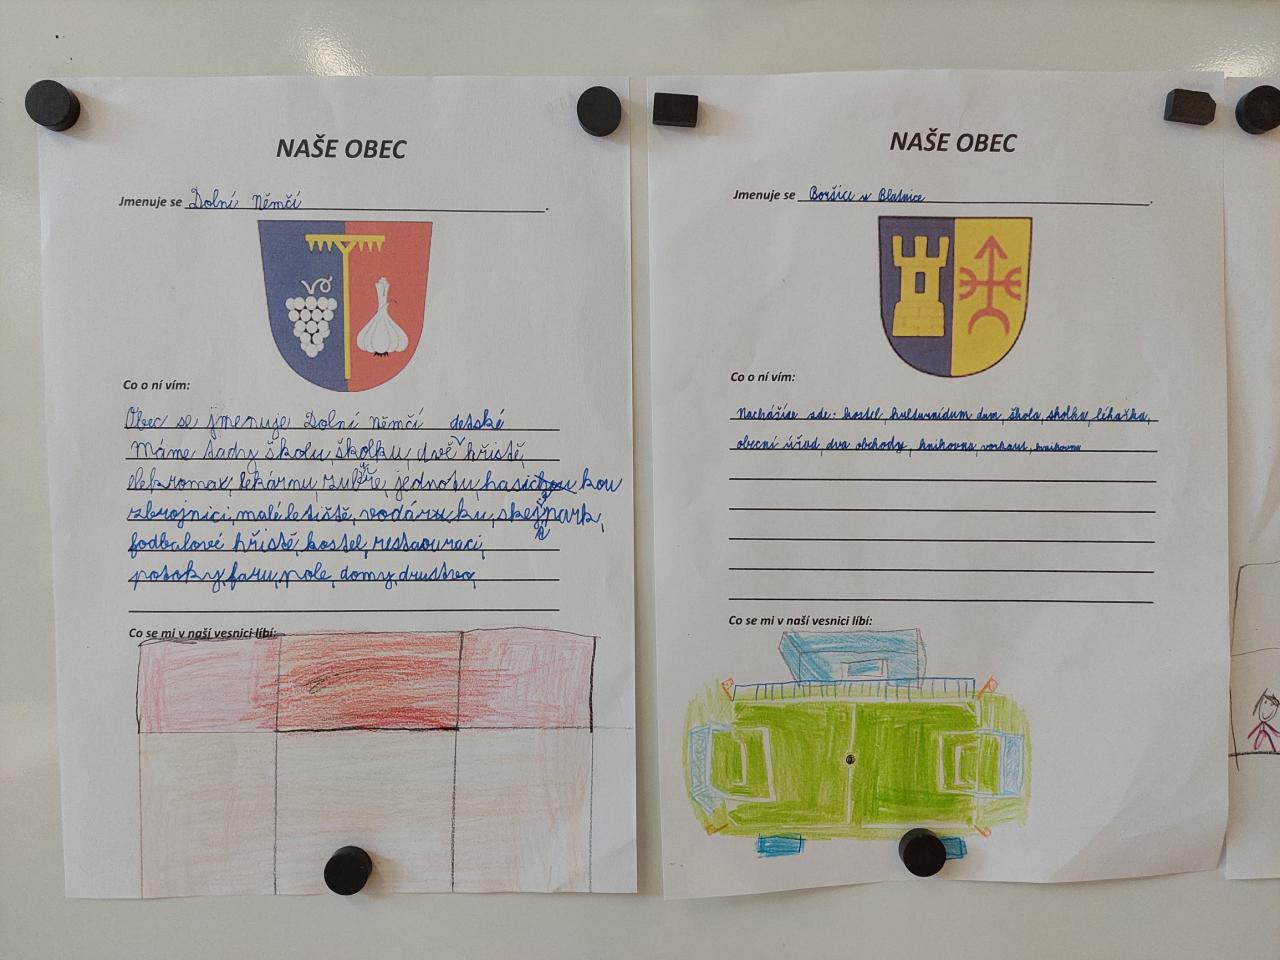 NAŠE OBEC
Jmenuje se Dolní Němčí.
Co o ní vím:
Obec se jmenuje Dolní Němčí detské
Máme tady školu, školku, dvě hřiště,
elekromax, lekárnu, zubře, jednotu, hasičskou
zbrojnici, malé letiště, vodárku, skejtpark,
fodbalové hřiště, kostel, restaouraci,
potoky, faru, pole, domy, drustevo
Co se mi v naší vesnici líbí:
NAŠE OBEC
Jmenuje se Boršice u Blatnice.
Co o ní vím:
Nacházíse zde: kostel, kulturnídum dum, škola, školka, lékařka,
obecní úřad, dva obchody, knihovna, knihovna
Co se mi v naší vesnici líbí: